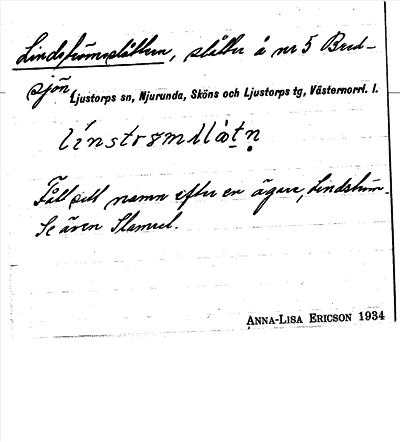 Lindströmsslåttern, slåtter å nr 5 Bred-
sjön,
Ljustorps sn, Njurunda, Sköns och Ljustorps tg, Västernorrl. l.
Fått sitt namn efter en ägare, Lindström.
Se även
ANNA-LISA ERICSON 1934